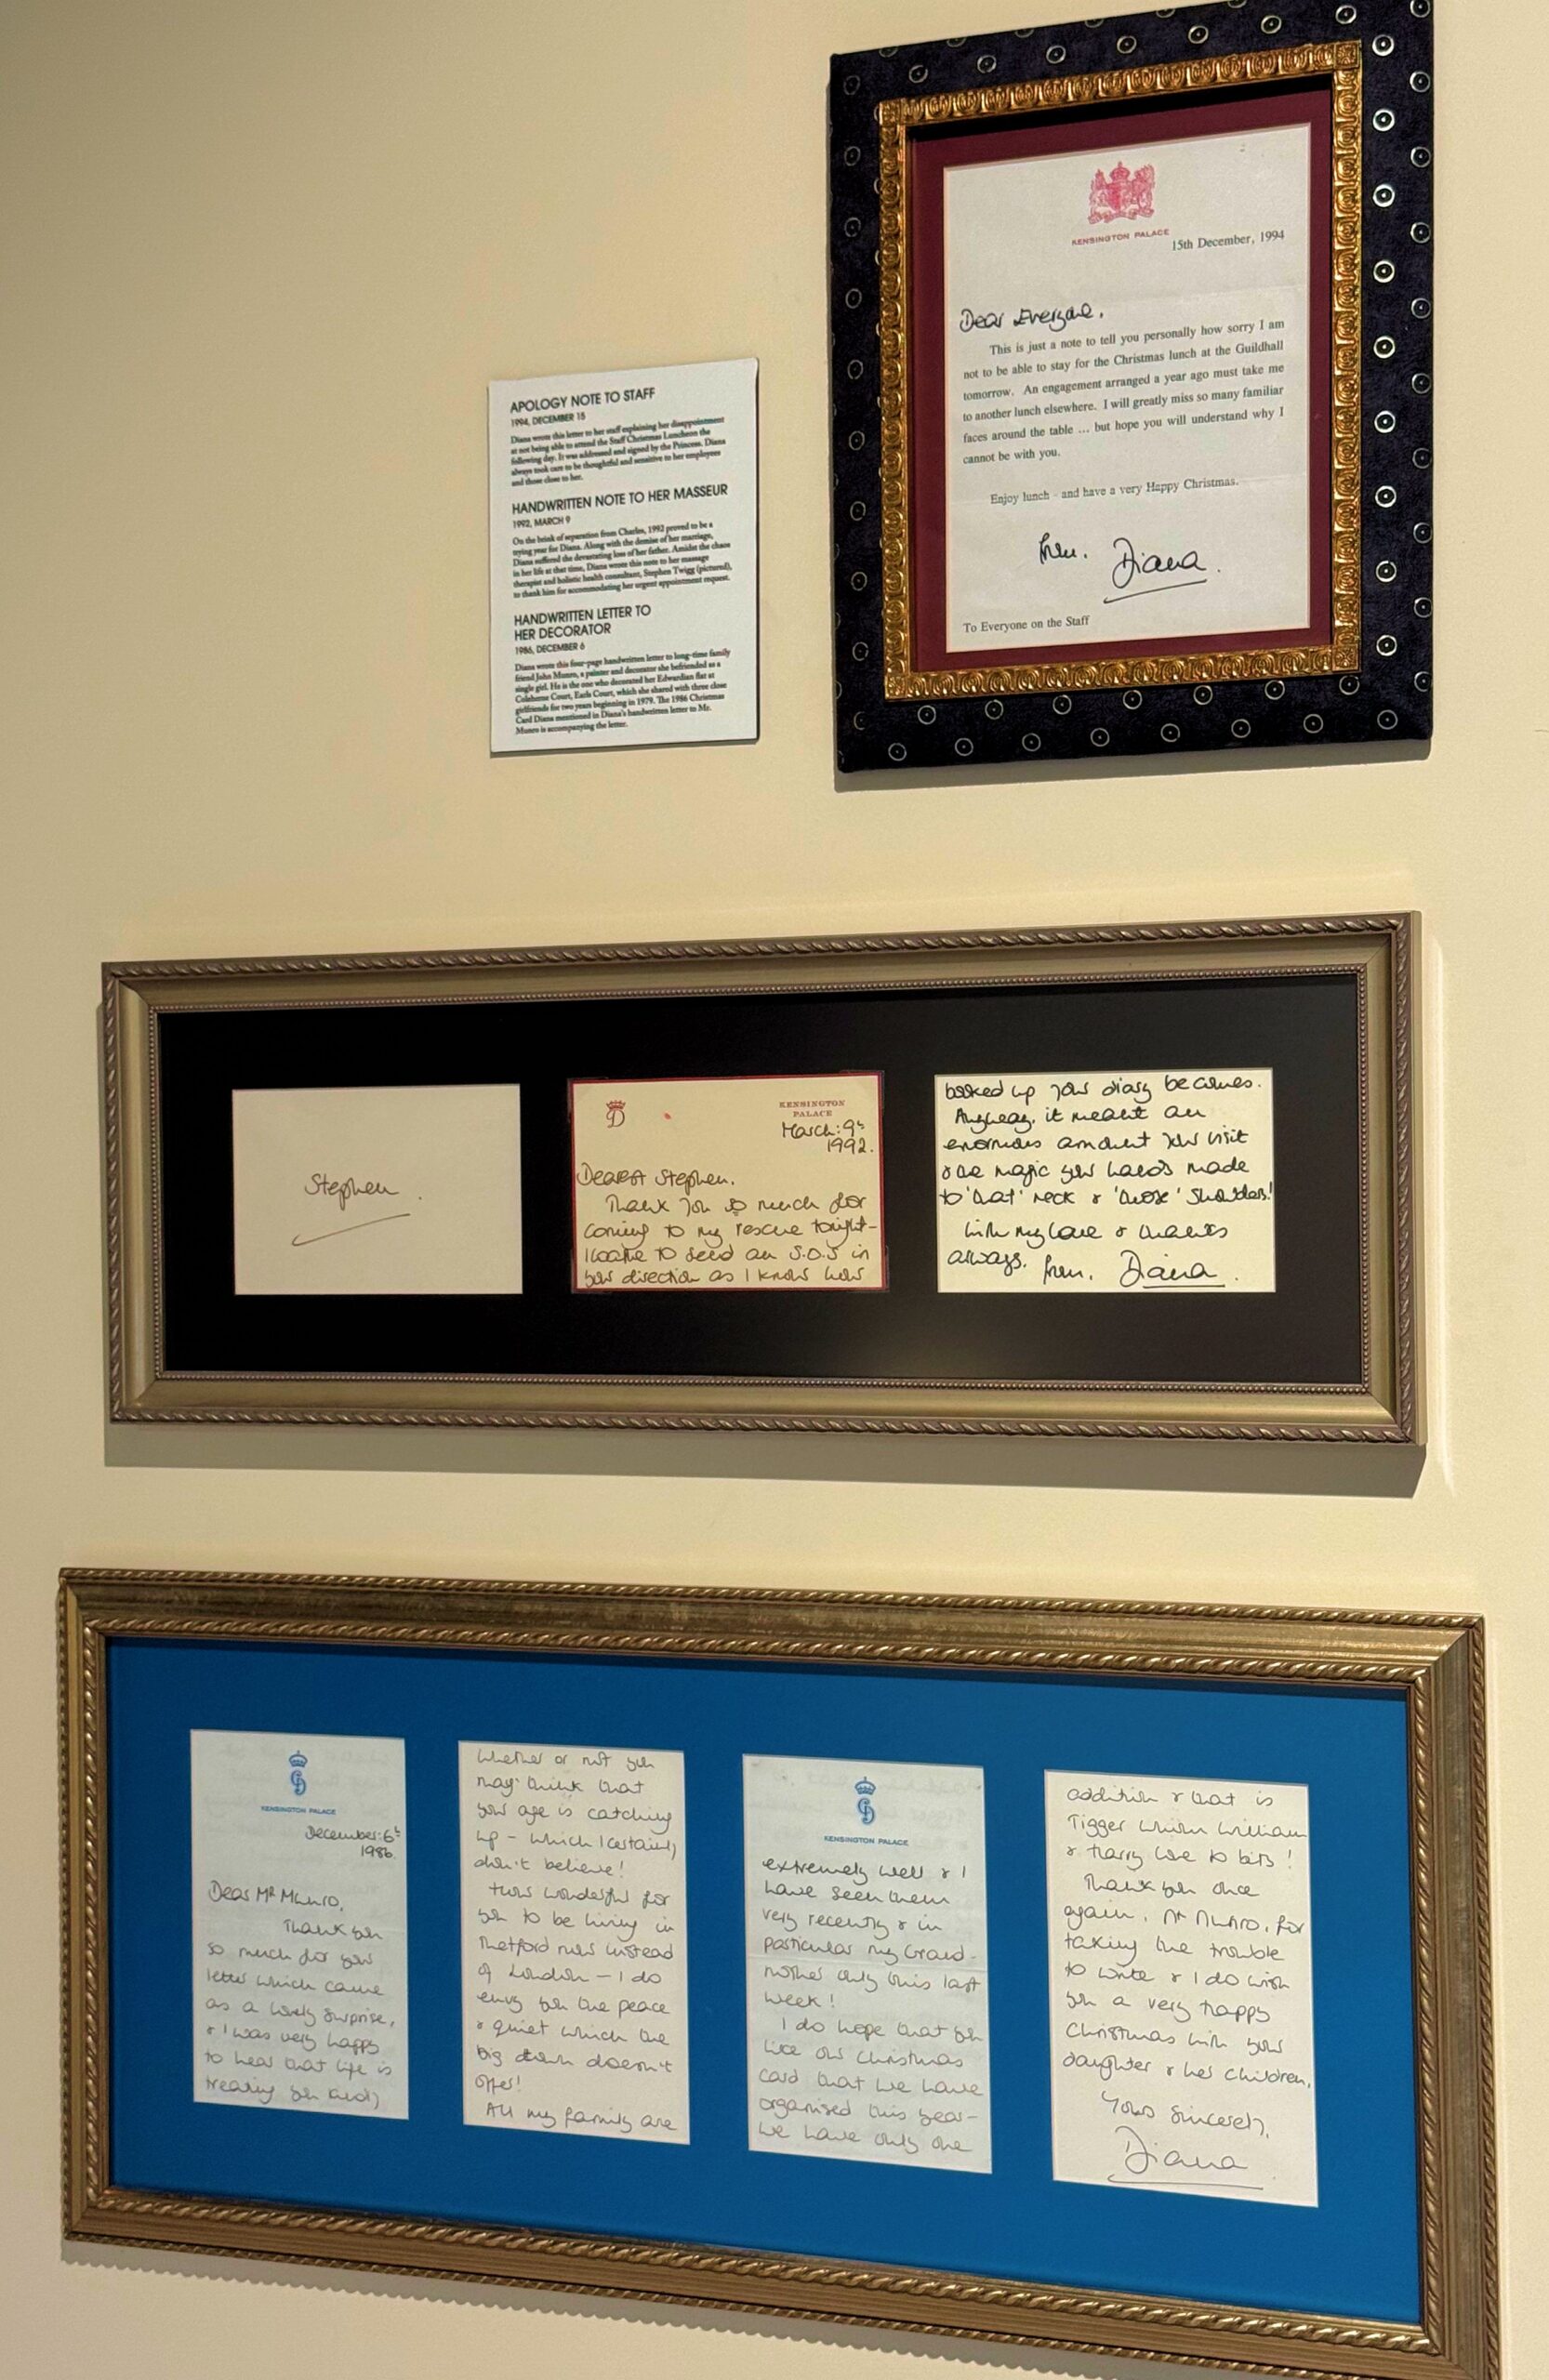 APOLOGY NOTE TO STAFF
1994, DECEMBER 15
Diana wrote this letter to her staff explaining her disappointment
at not being able to attend the Staff Christmas Luncheon the
following day. It was addressed and signed by the Princess. Diana
always took care to be thoughtful and sensitive to her employees
and those close to her.
HANDWRITTEN NOTE TO HER MASSEUR
1992, MARCH 9
On the brink of separation from Charles, 1992 proved to be a
trying year for Diana. Along with the demise of her marriage,
Diana suffered the devastating loss of her father. Amidst the chaos
in her life at that time, Diana wrote this note to her massage
therapist and holistic health consultant, Stephen Twigg (pictured),
to thank him for accommodating her urgent appointment request.
HANDWRITTEN LETTER TO
HER DECORATOR
1986, DECEMBER 6
Diana wrote this four-page handwritten letter to long-time family
friend John Munro, a painter and decorator she befriended as a
single girl. He is the one who decorated her Edwardian flat at
Coleherne Court, Earls Court, which she shared with three close
girlfriends for two years beginning in 1979. The 1986 Christmas
Card Diana mentioned in Diana's handwritten letter to Mr.
Munro is accompanying the letter.
KENSINGTON PALACE
15th December, 1994
Dear Everyone,
This is just a note to tell you personally how sorry I am
not to be able to stay for the Christmas lunch at the Guildhall
tomorrow. An engagement arranged a year ago must take me
to another lunch elsewhere. I will greatly miss so many familiar
faces around the table ... but hope you will understand why I
cannot be with you.
Enjoy lunch - and have a very Happy Christmas.
from. Diana.
To Everyone on the Staff
Stephen.
D
KENSINGTON
PALACE
March: 9th
1992.
Dearest Stephen.
Thank you so much for
coming to my rescue tonight-
I loathe to send an S.O.S in
your direction as I know how
booked up your diary becomes.
Anyway, it meant an
enormous amount your visit
& the magic your hands made
to 'that' neck & 'those' shoulders!
With my love & thanks
always. from. Diana.
KENSINGTON PALACE
December: 6th
1986.
Dear Mr Munro,
Thank you
so much for your
letter which came
as a lovely surprise,
& I was very happy
to hear that life is
treating you kindly
whether or not you
may think that
your age is catching
up - which I certainly
don't believe!
How wonderful for
you to be living in
Thetford now instead
of London - I do
envy you the peace
& quiet which the
big town doesn't
offer!
All my family are
KENSINGTON PALACE
extremely well & I
have seen them
very recently & in
particular my Grand-
mother only this last
week!
I do hope that you
like our Christmas
card that we have
organised this year-
we have only one
addition & that is
Tigger whom William
& Harry love to bits!
Thank you once
again, Mr Munro, for
taking the trouble
to write & I do wish
you a very happy
Christmas with your
daughter & her children,
Yours sincerely,
Diana